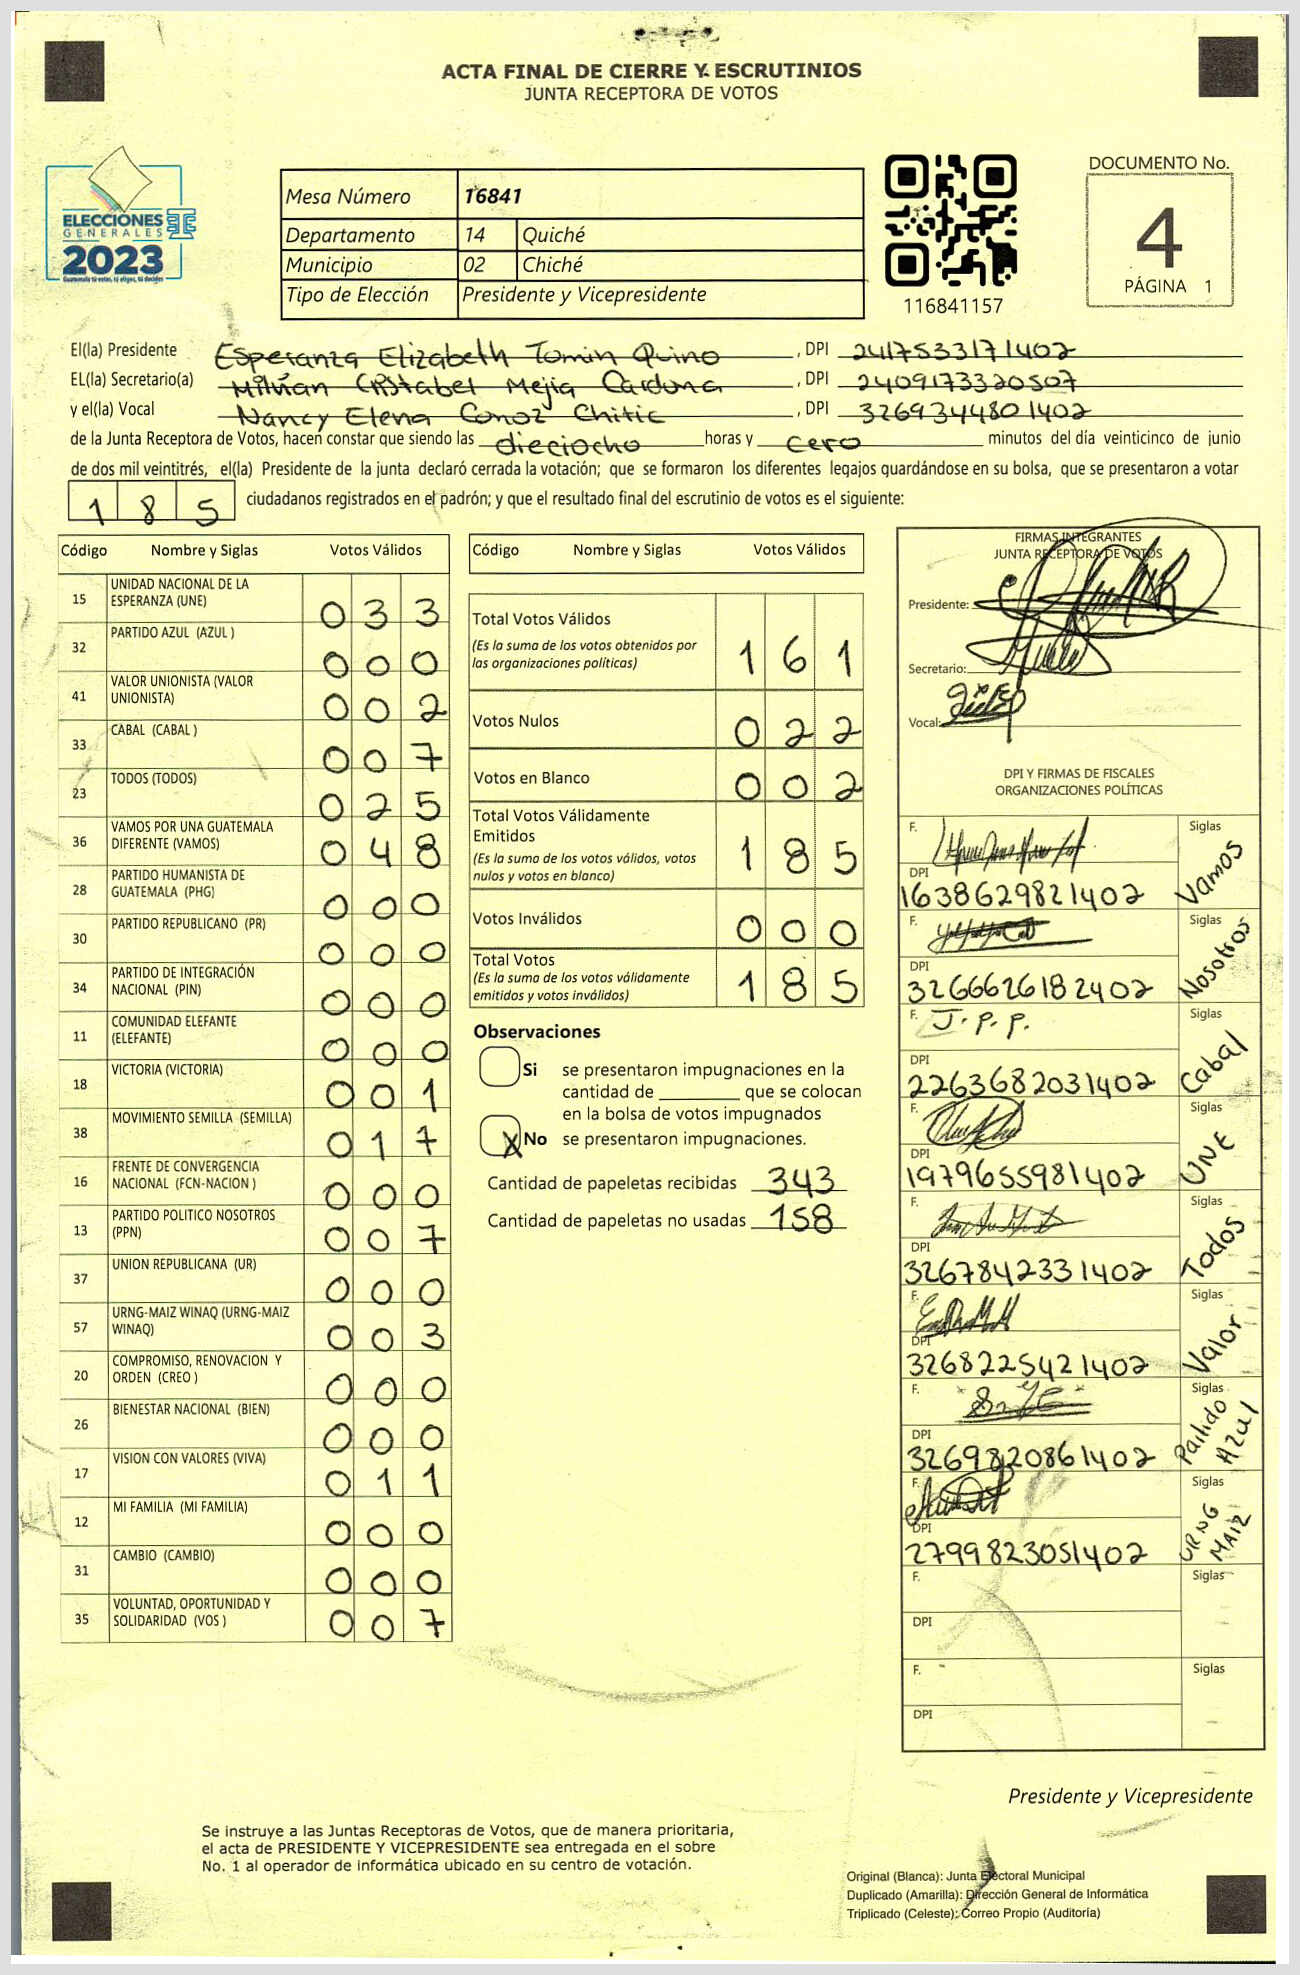 ACTA FINAL DE CIERRE Y ESCRUTINIOS
JUNTA RECEPTORA DE VOTOS
ELECCIONES
GENERALES
2023
Guatemala tú votas, tú eliges, tú decides
Mesa Número 16841
Departamento 14 Quiché
Municipio 02 Chiché
Tipo de Elección Presidente y Vicepresidente
116841157
DOCUMENTO No.
4
PÁGINA 1
El(la) Presidente Esperanza Elizabeth Tomin Quino, DPI 2417533171402
EL(la) Secretario(a) Cristabel Mejia Cardona, DPI 2409173320507
y el(la) Vocal Nancy Elena Conoz Chitic, DPI 3269344801402
de la Junta Receptora de Votos, hacen constar que siendo las dieciocho horas y cero minutos del día veinticinco de junio
de dos mil veintitrés, el(la) Presidente de la junta declaró cerrada la votación; que se formaron los diferentes legajos guardándose en su bolsa, que se presentaron a votar
185 ciudadanos registrados en el padrón; y que el resultado final del escrutinio de votos es el siguiente:
Código Nombre y Siglas Votos Válidos
15 UNIDAD NACIONAL DE LA ESPERANZA (UNE) 033
32 PARTIDO AZUL (AZUL ) 000
41 VALOR UNIONISTA (VALOR UNIONISTA) 002
33 CABAL (CABAL ) 007
23 TODOS (TODOS) 025
36 VAMOS POR UNA GUATEMALA DIFERENTE (VAMOS) 048
28 PARTIDO HUMANISTA DE GUATEMALA (PHG) 000
30 PARTIDO REPUBLICANO (PR) 000
34 PARTIDO DE INTEGRACIÓN NACIONAL (PIN) 000
11 COMUNIDAD ELEFANTE (ELEFANTE) 000
18 VICTORIA (VICTORIA) 001
38 MOVIMIENTO SEMILLA (SEMILLA) 017
16 FRENTE DE CONVERGENCIA NACIONAL (FCN-NACION ) 000
13 PARTIDO POLITICO NOSOTROS (PPN) 007
37 UNION REPUBLICANA (UR) 000
57 URNG-MAIZ WINAQ (URNG-MAIZ WINAQ) 003
20 COMPROMISO, RENOVACION Y ORDEN (CREO ) 000
26 BIENESTAR NACIONAL (BIEN) 000
17 VISION CON VALORES (VIVA) 011
12 MI FAMILIA (MI FAMILIA) 000
31 CAMBIO (CAMBIO) 000
35 VOLUNTAD, OPORTUNIDAD Y SOLIDARIDAD (VOS ) 007
Código Nombre y Siglas Votos Válidos
Total Votos Válidos 161
(Es la suma de los votos obtenidos por
las organizaciones políticas)
Votos Nulos 022
Votos en Blanco 002
Total Votos Válidamente
Emitidos 185
(Es la suma de los votos válidos, votos
nulos y votos en blanco)
Votos Inválidos 000
Total Votos 185
(Es la suma de los votos válidamente
emitidos y votos inválidos)
Observaciones
Si se presentaron impugnaciones en la
cantidad de ________ que se colocan
en la bolsa de votos impugnados
X No se presentaron impugnaciones.
Cantidad de papeletas recibidas 343
Cantidad de papeletas no usadas 158
FIRMAS INTEGRANTES
JUNTA RECEPTORA DE VOTOS
Presidente:
Secretario:
Vocal:
DPI Y FIRMAS DE FISCALES
ORGANIZACIONES POLÍTICAS
F. Siglas Vamos
DPI 1638629821402
F. Siglas Nosotros
DPI 3266626182402
F. J.P.P. Siglas Cabal
DPI 2263682031402
F. Siglas UNE
DPI 1979655981402
F. Siglas Todos
DPI 3267842331402
F. Siglas Valor
DPI 3268225421402
F. Siglas Partido Azul
DPI 3269820861402
F. Siglas URNG MAIZ
DPI 2799823051402
F. Siglas
DPI
F. Siglas
DPI
Presidente y Vicepresidente
Se instruye a las Juntas Receptoras de Votos, que de manera prioritaria,
el acta de PRESIDENTE Y VICEPRESIDENTE sea entregada en el sobre
No. 1 al operador de informática ubicado en su centro de votación.
Original (Blanca): Junta Electoral Municipal
Duplicado (Amarilla): Dirección General de Informática
Triplicado (Celeste): Correo Propio (Auditoría)